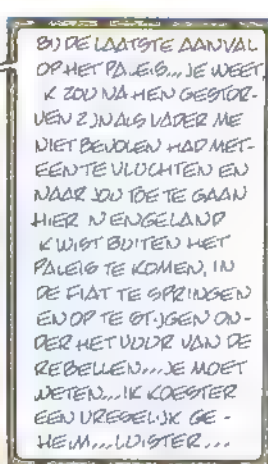 BIJ DE LAATSTE AANVAL
OP HET PALEIS... JE WEET,
IK ZOU NA HEN GESTOR-
VEN ZIJN ALS VADER ME
NIET BEVOLEN HAD MET-
EEN TE VLUCHTEN EN
NAAR JOU TOE TE GAAN
HIER IN ENGELAND
IK WIST BUITEN HET
PALEIS TE KOMEN, IN
DE FIAT TE SPRINGEN
EN OP TE STIJGEN ON-
DER HET VUUR VAN DE
REBELLEN... JE MOET
WETEN... IK KOESTER
EEN VRESELIJK GE-
HEIM... LUISTER...